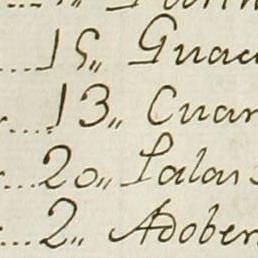 15,, Guac
13,, Cuar
20,, Palas
2,, Adober